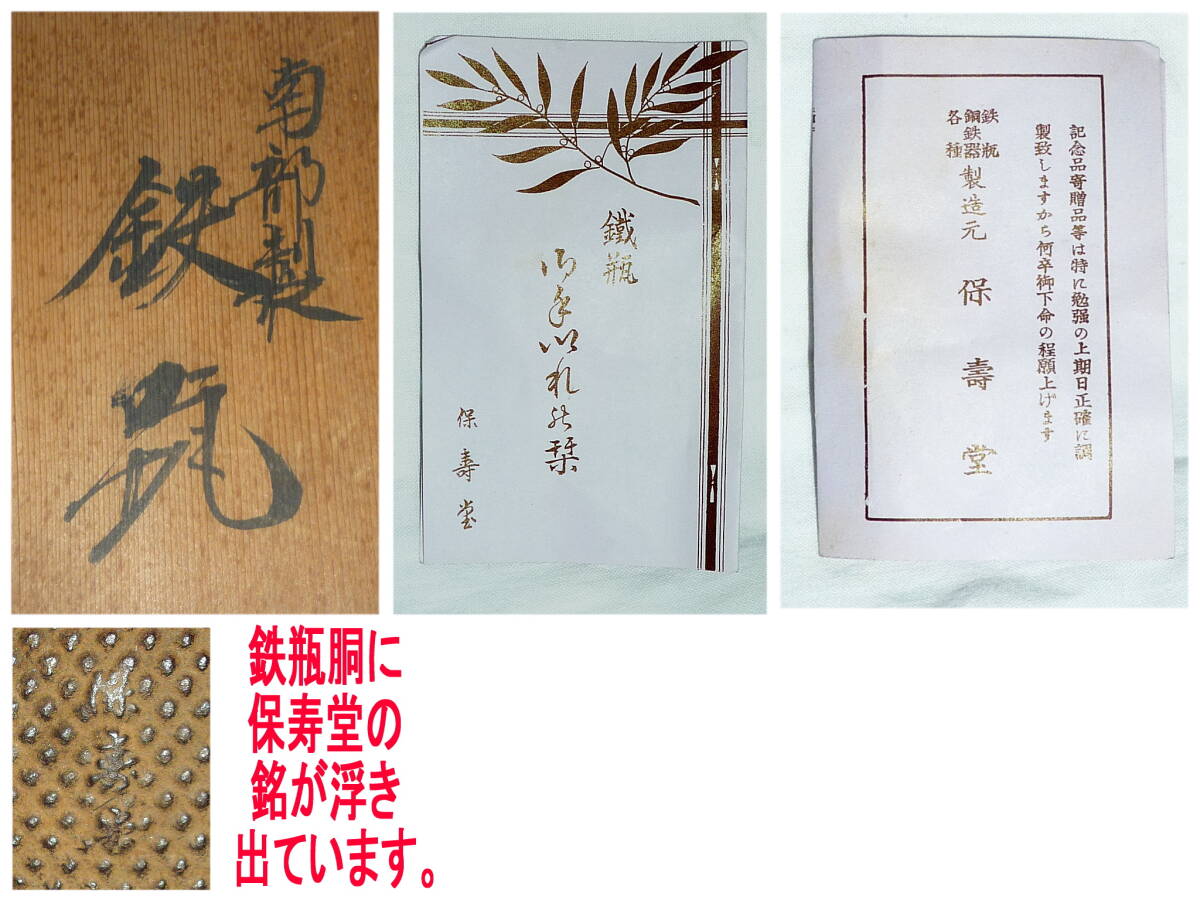 南部製
鉄瓶
鐵瓶
御手入れの栞
保壽堂
記念品寄贈品等は特に勉强の上期日正確に調
製致しますから何卒御下命の程願上げます
鉄瓶
銅鉄器
各種
製造元 保壽堂
保壽堂
鉄瓶胴に
保寿堂の
銘が浮き
出ています。